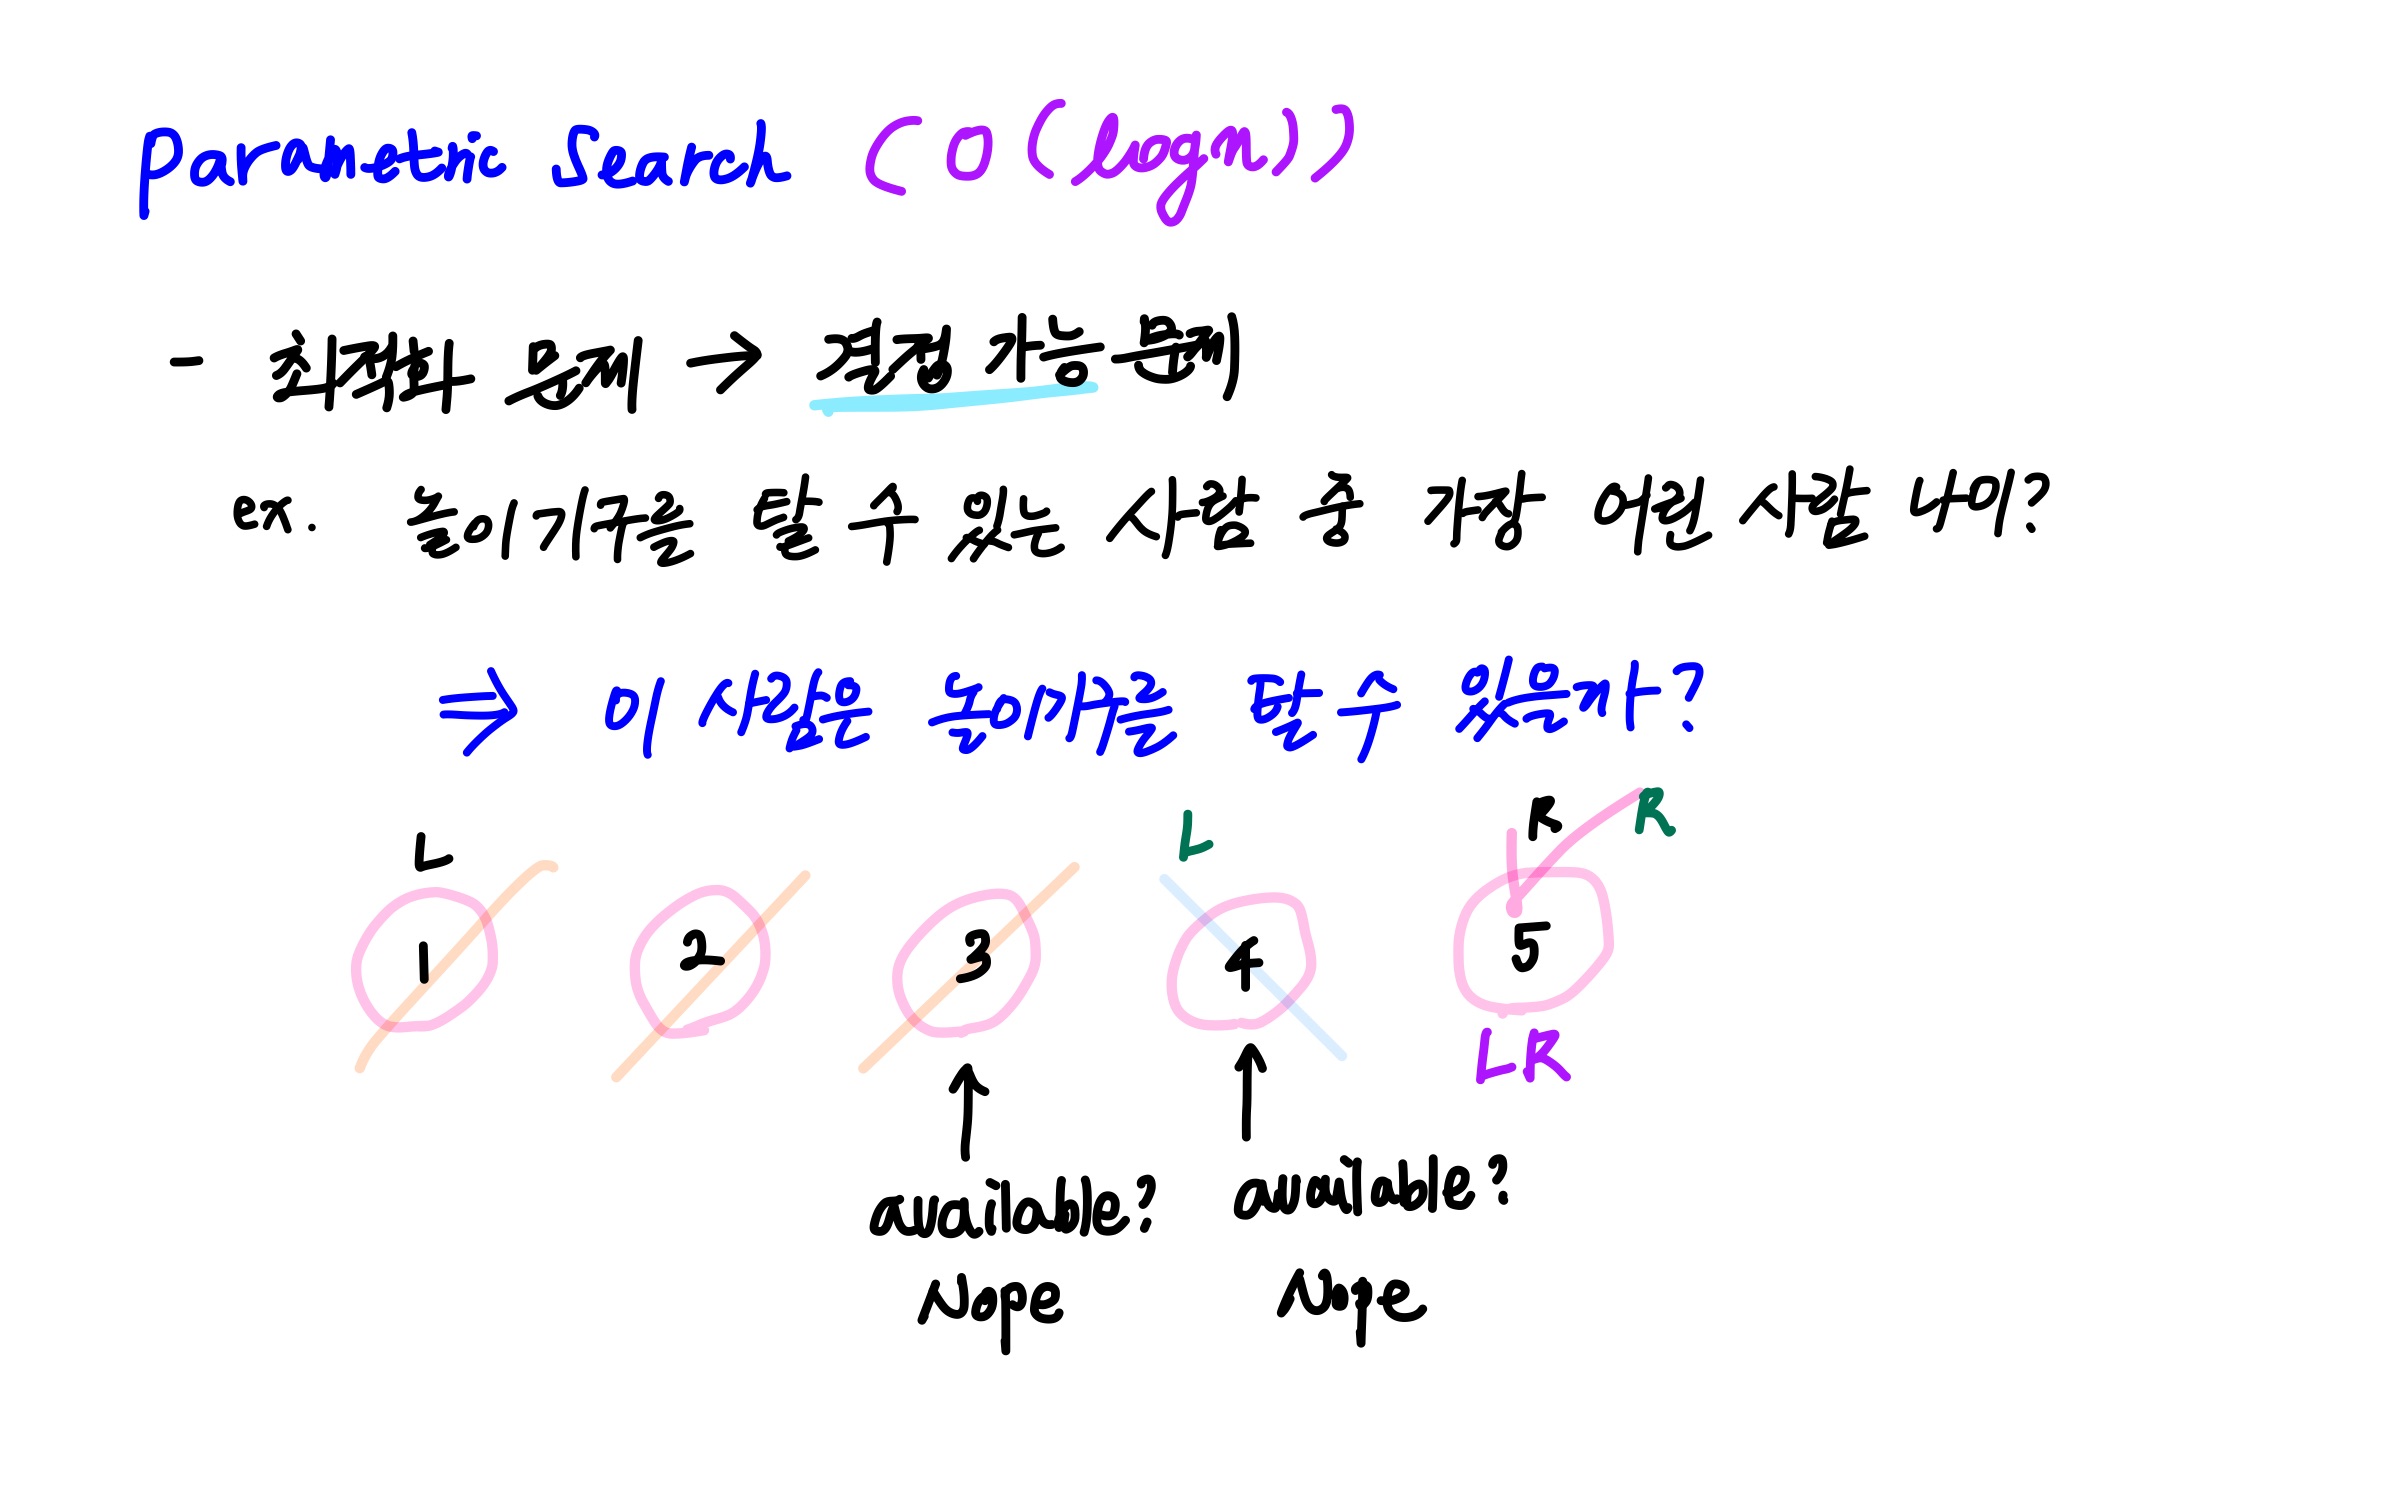 Parametric Search (O(logn))
- 최적화 문제 → 결정 가능 문제
ex. 놀이기구을 탈 수 있는 사람 중 가장 어린 사람 나이?
⇒ 이 사람은 놀이기구를 탈 수 있은가?
L L R R
1 2 3 4 5
LR
available? available?
Nope Nope